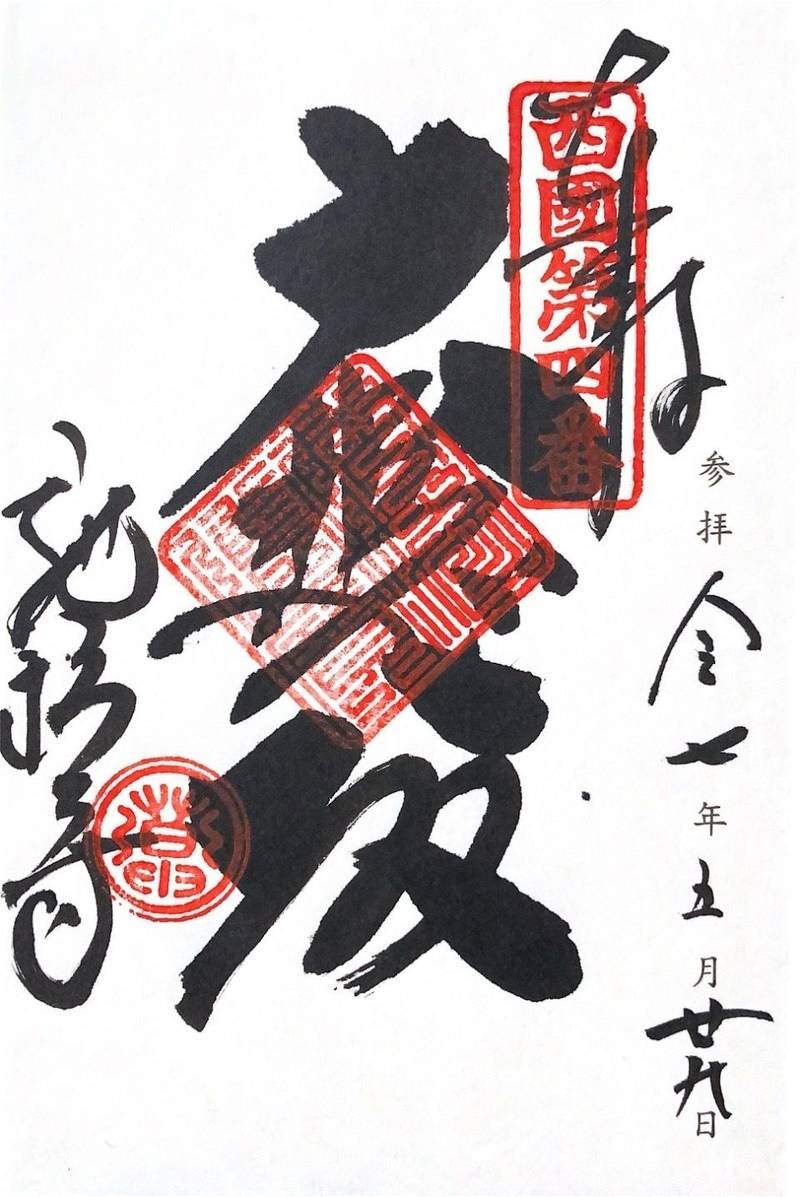 参拝 令七年五月廿九日
奉拝
西國第四番
大悲殿
施福寺